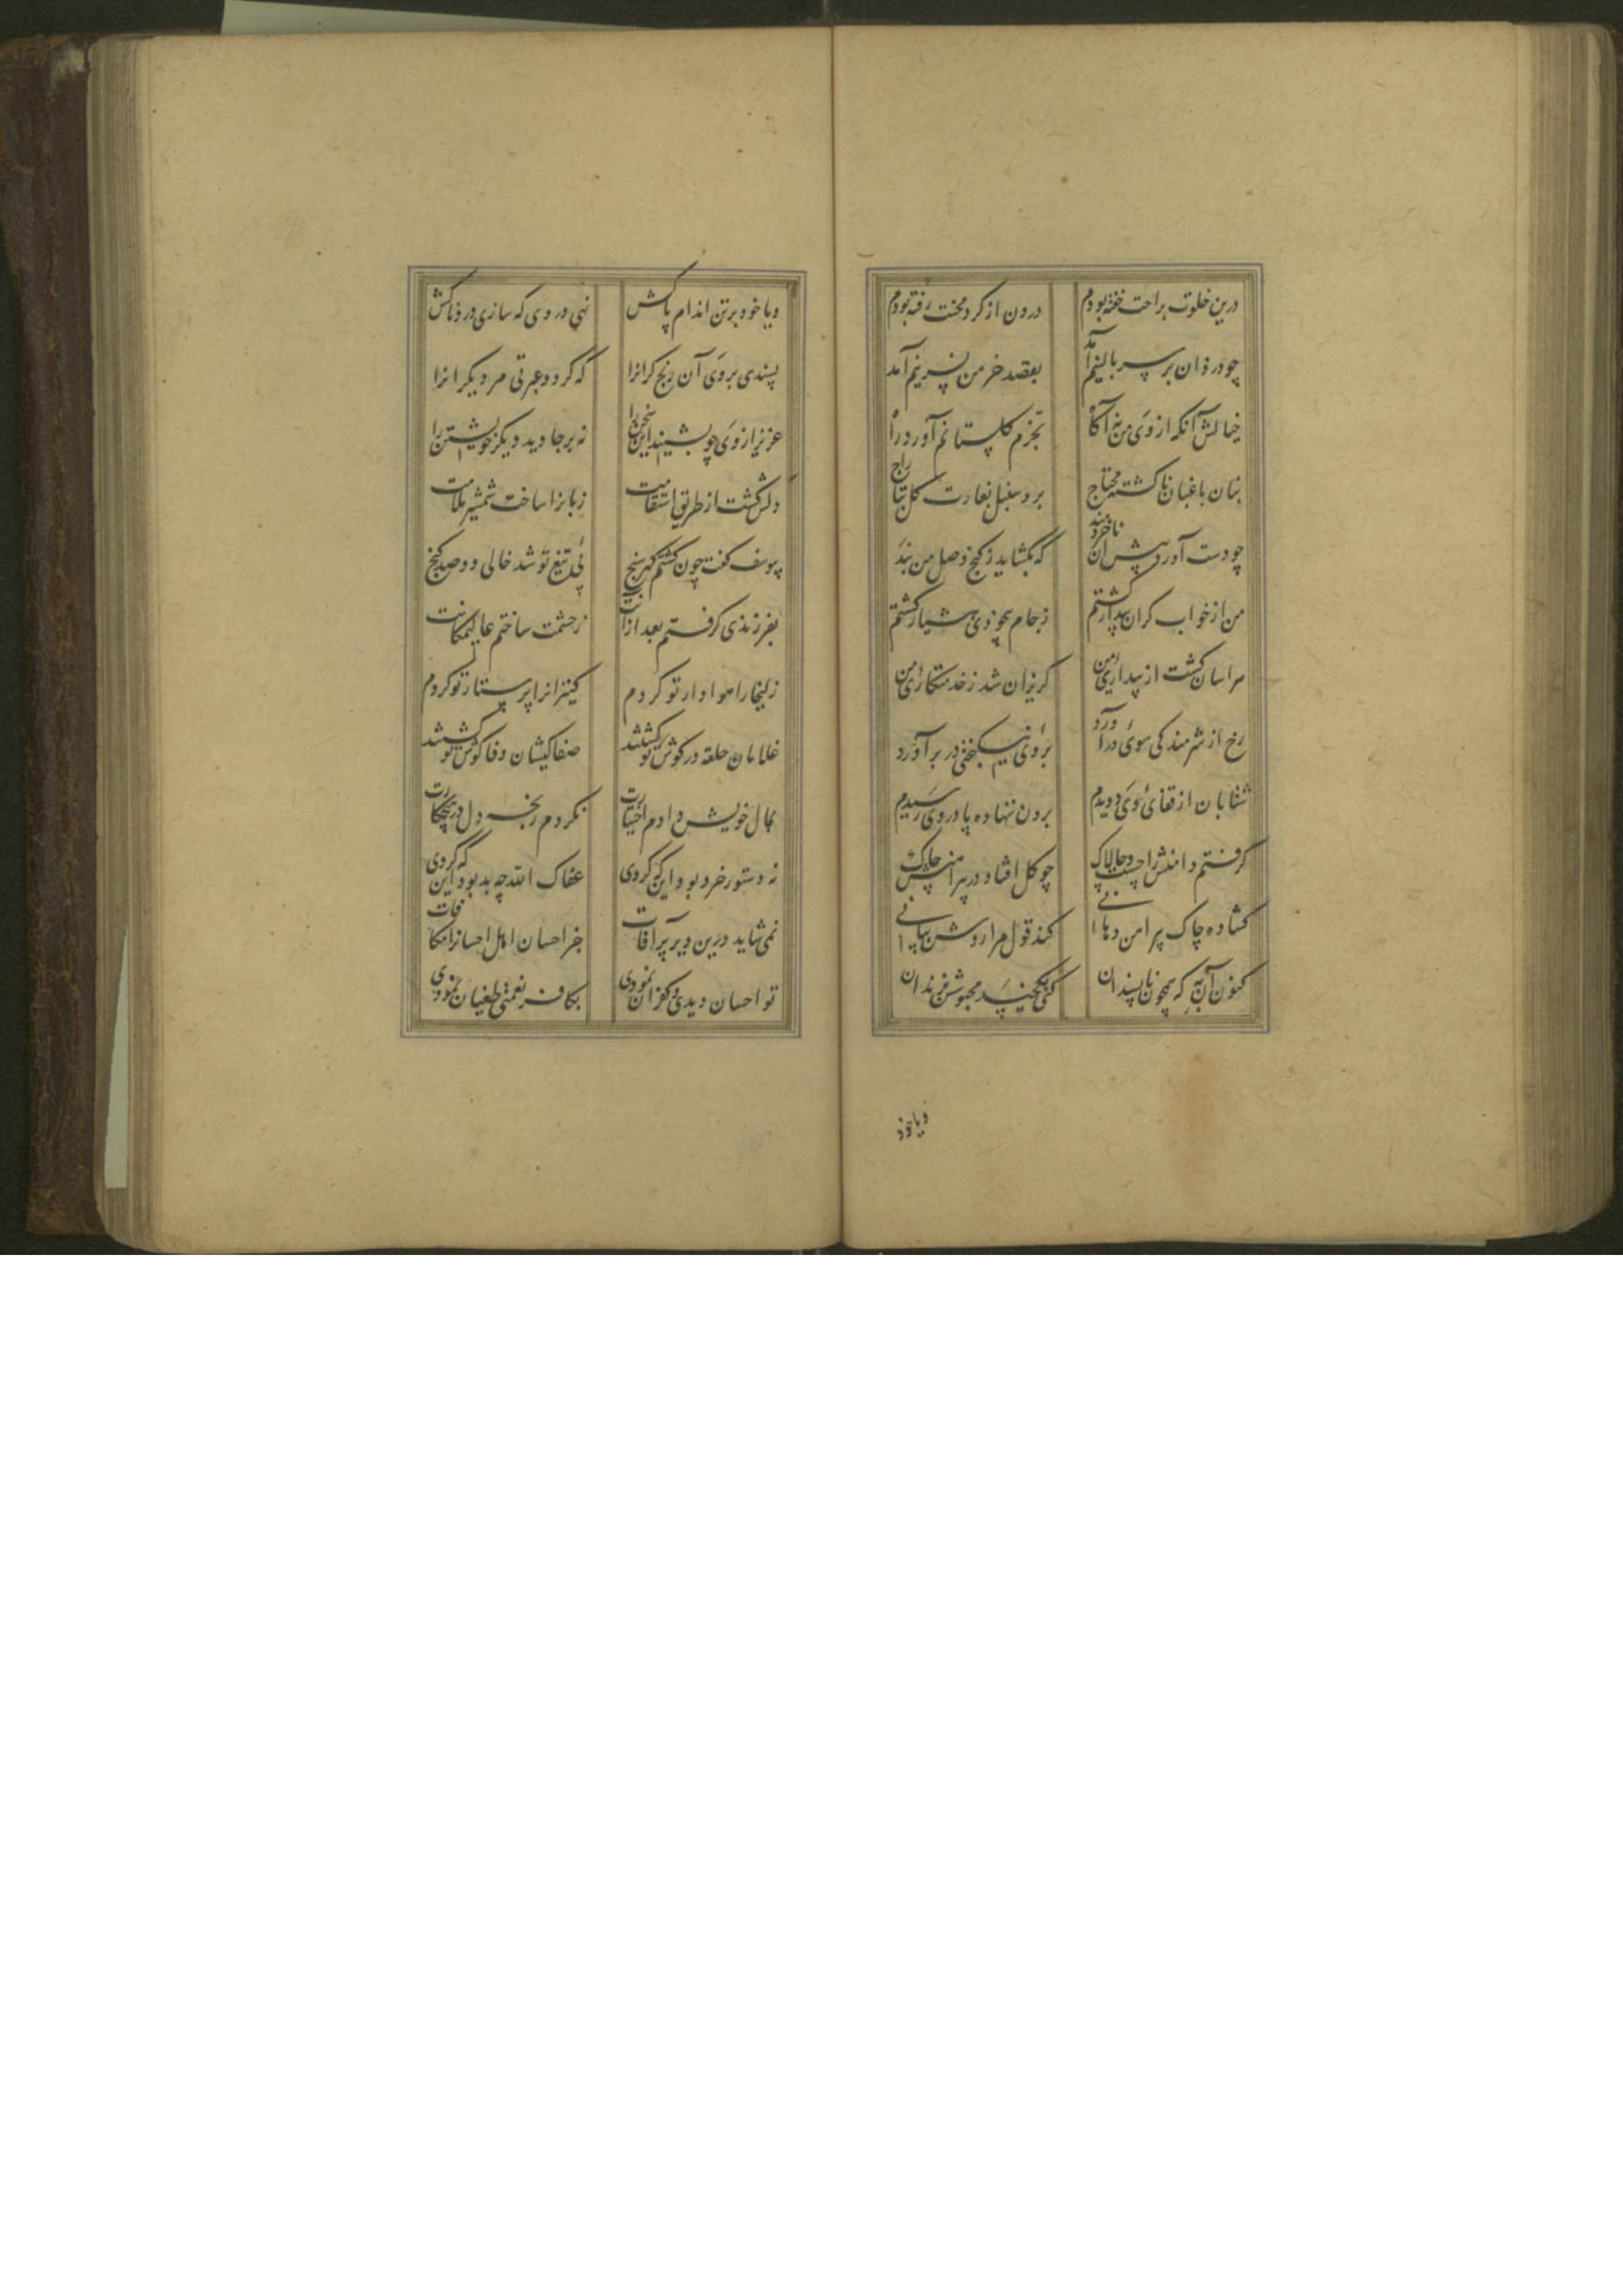 درین خلوت براحت خفته بودم درون از کرد محنت رفته بودم
چو دزدان بر سر بالینم آمد بقصد خرمن نسرینم آمد
خیالش آنکه از وی من نه آکاه بحرم کلستانم آورد راه
بنان باغبان ناکشته محتاج برد سنبل بغارت کل بتاراج
چو دست آورد پیش آن ناخردمند که بکشاید ز کنج وصل من بند
من از خواب کران بیدار کشتم ز جام بیخودی هشیار کشتم
هراسان کشت از بیداری من کریزان شد ز خدمتکاری من
رخ از شرمندکی سوی در آورد بروی نیکبختی در بر آورد
شتابان از قفای وی دویدم برون ننهاده پا در وی رسیدم
کرفتم دامنش را چست و چالاک چو کل افتاد در پیراهنش چاک
کشاده چاک پیراهن دهانی کند قول مرا روشن بیانی
کنون آن به که همچون ناپسندان کنی یکچند محبوسش بزندان
ویا خود
ویا خود بر تن اندام پاکش نهی دردی که سازی دردناکش
پسندی بر وی آن رنج کرانرا که کردد عبرتی مر دیکرانرا
عزیز از وی چو بشنید این سخن را نه بر جا دید دیکر خویشتن را
دلش کشت از طریق استقامت زبانرا ساخت شمشیر ملامت
بیوسف کفت چون کشتم کهرسنج پی تیغ تو شد خالی دو صد کنج
بفرزندی کرفتم بعد از آنت ز حشمت ساختم عالی مکانت
زلیخا را هوادار تو کردم کنیزانرا پرستار تو کردم
غلامان حلقه در کوش تو کشتند صفاکیشان وفاکوش تو کشتند
بمال خویش دادم اختیارت نکردم رنجه دل در هیچ کارت
نه دستور خرد بود این که کردی عفاک الله چه بد بود این که کردی
نمی شاید درین دیر پر آفات جز احسان اهل احسانرا مکافات
تو احسان دیدی و کفران نمودی بکافر نعمتی طغیان نمودی